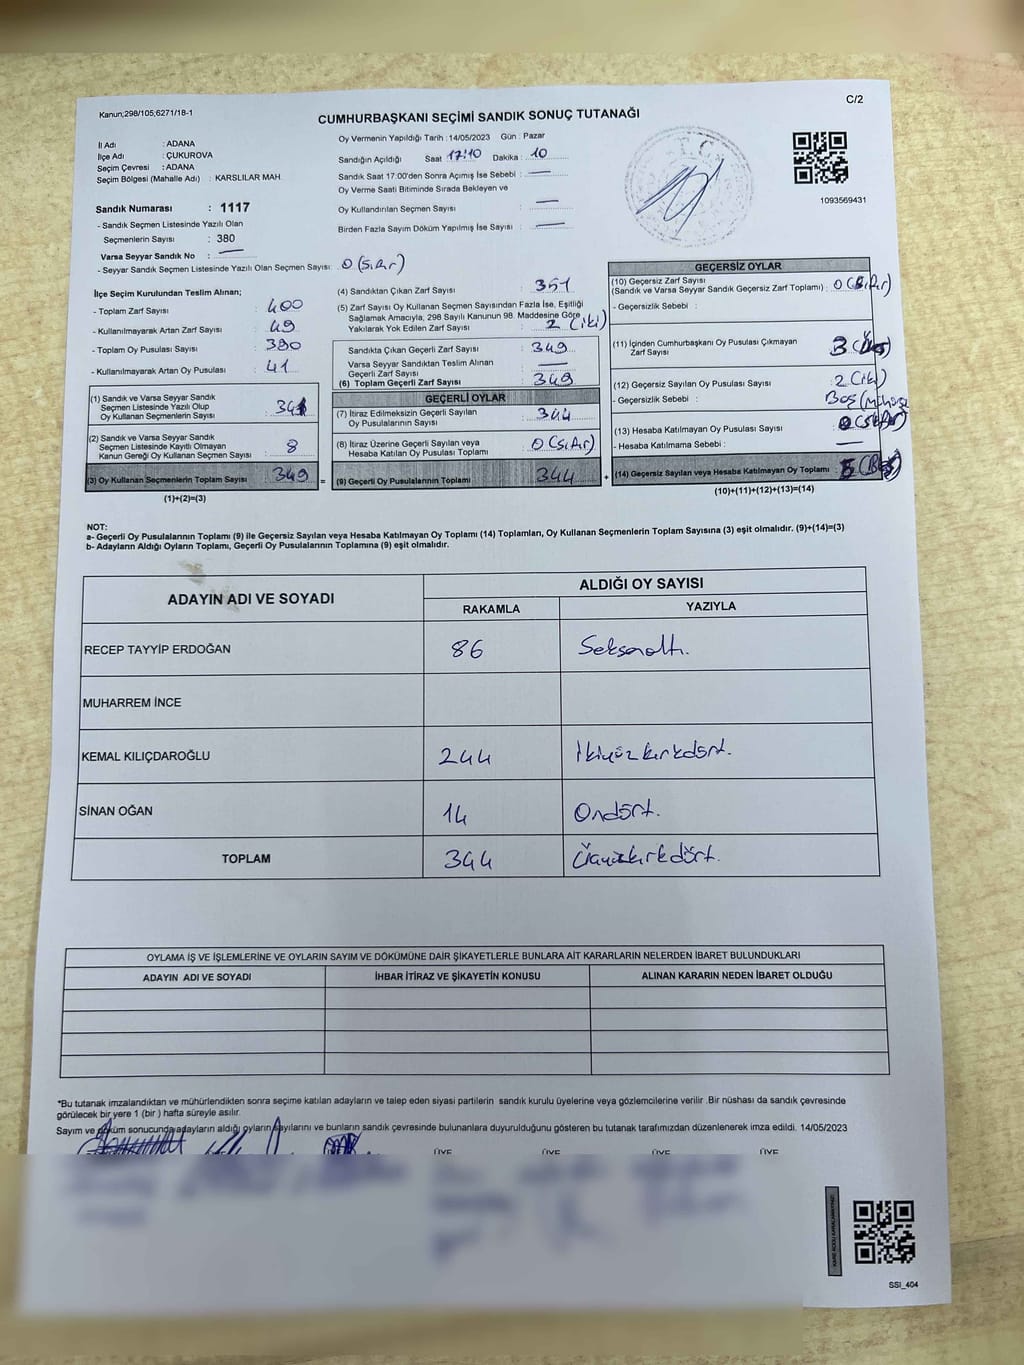 Kanun;298/105;6271/18-1
C/2
CUMHURBAŞKANI SEÇİMİ SANDIK SONUÇ TUTANAĞI
İl Adı : ADANA
İlçe Adı : ÇUKUROVA
Seçim Çevresi : ADANA
Seçim Bölgesi (Mahalle Adı) : KARSLILAR MAH.
Sandık Numarası : 1117
- Sandık Seçmen Listesinde Yazılı Olan
Seçmenlerin Sayısı : 380
Varsa Seyyar Sandık No :
- Seyyar Sandık Seçmen Listesinde Yazılı Olan Seçmen Sayısı: 0 (Sıfır)
Oy Vermenin Yapıldığı Tarih : 14/05/2023 Gün : Pazar
Sandığın Açıldığı Saat 17:10 Dakika : 10
Sandık Saat 17:00'den Sonra Açımış İse Sebebi :
Oy Verme Saati Bitiminde Sırada Bekleyen ve
Oy Kullandırılan Seçmen Sayısı :
Birden Fazla Sayım Döküm Yapılmış İse Sayısı :
T.C.
1093569431
İlçe Seçim Kurulundan Teslim Alınan;
- Toplam Zarf Sayısı : 400
- Kullanılmayarak Artan Zarf Sayısı : 49
- Toplam Oy Pusulası Sayısı : 390
- Kullanılmayarak Artan Oy Pusulası : 41
(1) Sandık ve Varsa Seyyar Sandık
Seçmen Listesinde Yazılı Olup
Oy Kullanan Seçmenlerin Sayısı : 341
(2) Sandık ve Varsa Seyyar Sandık
Seçmen Listesinde Kayıtlı Olmayan
Kanun Gereği Oy Kullanan Seçmen Sayısı : 8
(3) Oy Kullanan Seçmenlerin Toplam Sayısı : 349 =
(1)+(2)=(3)
(4) Sandıktan Çıkan Zarf Sayısı : 351
(5) Zarf Sayısı Oy Kullanan Seçmen Sayısından Fazla İse, Eşitliği
Sağlamak Amacıyla, 298 Sayılı Kanunun 98. Maddesine Göre
Yakılarak Yok Edilen Zarf Sayısı : 2 (iki)
Sandıkta Çıkan Geçerli Zarf Sayısı : 349
Varsa Seyyar Sandıktan Teslim Alınan
Geçerli Zarf Sayısı :
(6) Toplam Geçerli Zarf Sayısı : 349
GEÇERLİ OYLAR
(7) İtiraz Edilmeksizin Geçerli Sayılan
Oy Pusulalarının Sayısı : 344
(8) İtiraz Üzerine Geçerli Sayılan veya
Hesaba Katılan Oy Pusulası Toplamı : 0 (Sıfır)
(9) Geçerli Oy Pusulalarının Toplamı : 344 +
GEÇERSİZ OYLAR
(10) Geçersiz Zarf Sayısı
(Sandık ve Varsa Seyyar Sandık Geçersiz Zarf Toplamı) : 0 (Sıfır)
- Geçersizlik Sebebi :
(11) İçinden Cumhurbaşkanı Oy Pusulası Çıkmayan
Zarf Sayısı : 3 (Üç)
(12) Geçersiz Sayılan Oy Pusulası Sayısı : 2 (iki)
- Geçersizlik Sebebi : Boş
(13) Hesaba Katılmayan Oy Pusulası Sayısı : 0 (Sıfır)
- Hesaba Katılmama Sebebi :
(14) Geçersiz Sayılan veya Hesaba Katılmayan Oy Toplamı : 5 (Beş)
(10)+(11)+(12)+(13)=(14)
NOT:
a- Geçerli Oy Pusulalarının Toplamı (9) ile Geçersiz Sayılan veya Hesaba Katılmayan Oy Toplamı (14) Toplamları, Oy Kullanan Seçmenlerin Toplam Sayısına (3) eşit olmalıdır. (9)+(14)=(3)
b- Adayların Aldığı Oyların Toplamı, Geçerli Oy Pusulalarının Toplamına (9) eşit olmalıdır.
ADAYIN ADI VE SOYADI
ALDIĞI OY SAYISI
RAKAMLA YAZIYLA
RECEP TAYYİP ERDOĞAN 86 Seksenaltı.
MUHARREM İNCE
KEMAL KILIÇDAROĞLU 244 İkiyüzkırkdört.
SİNAN OĞAN 14 Ondört.
TOPLAM 344 Üçyüzkırkdört.
OYLAMA İŞ VE İŞLEMLERİNE VE OYLARIN SAYIM VE DÖKÜMÜNE DAİR ŞİKAYETLERLE BUNLARA AİT KARARLARIN NELERDEN İBARET BULUNDUKLARI
ADAYIN ADI VE SOYADI İHBAR İTİRAZ VE ŞİKAYETİN KONUSU ALINAN KARARIN NEDEN İBARET OLDUĞU
*Bu tutanak imzalandıktan ve mühürlendikten sonra seçime katılan adayların ve talep eden siyasi partilerin sandık kurulu üyelerine veya gözlemcilerine verilir .Bir nüshası da sandık çevresinde
görülecek bir yere 1 (bir ) hafta süreyle asılır.
Sayım ve döküm sonucunda adayların aldığı oyların sayılarını ve bunların sandık çevresinde bulunanlara duyurulduğunu gösteren bu tutanak tarafımızdan düzenlenerek imza edildi. 14/05/2023
ÜYE ÜYE ÜYE ÜYE
SSI_404